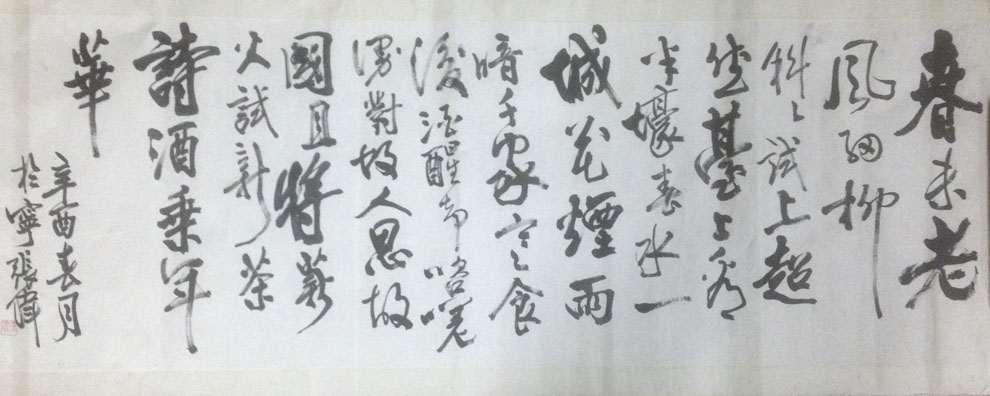 春未老
風細柳
斜〻試上超
然臺上看
半壕春水一
城花煙雨
暗千家寒食
後酒醒却咨嗟
對故人思故
國且將新
火試新茶
詩酒乘年
華
辛酉春月
於寧張偉